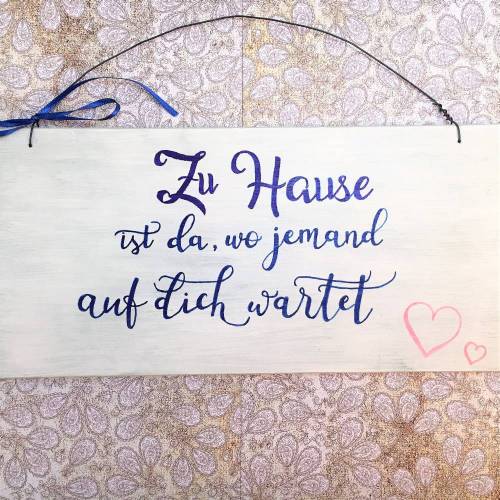 Zu Hause
ist da, wo jemand
auf dich wartet